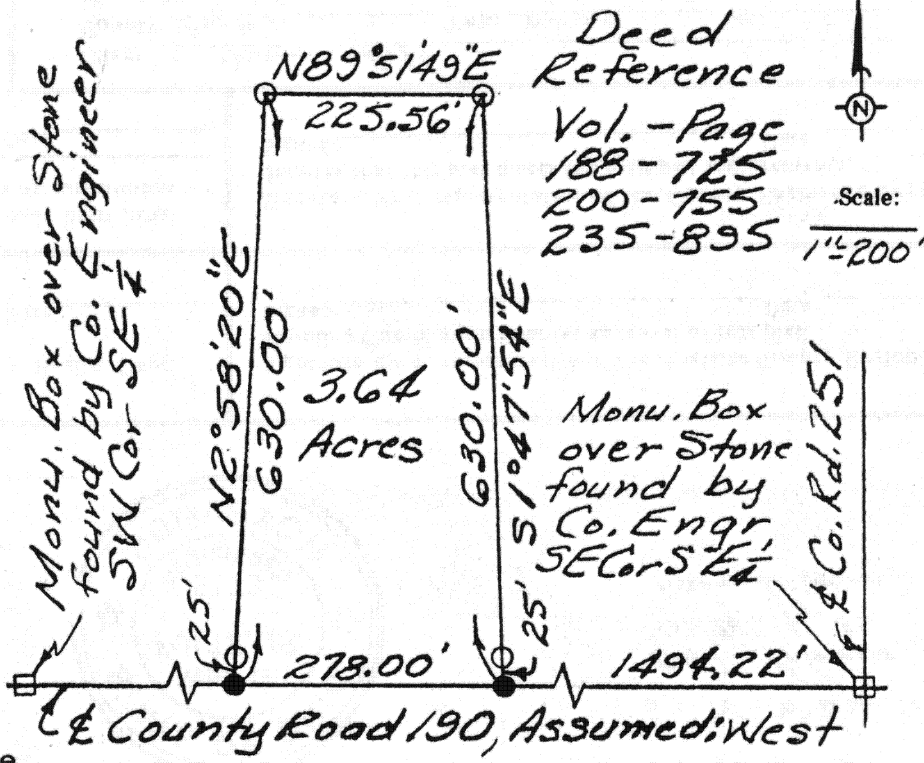 Monu. Box over Stone
found by Co. Engineer
SW Cor SE 1/4
N89°51'49"E
225.56'
Deed
Reference
Vol. - Page
188 - 725
200 - 755
235 - 895
N
Scale:
1"=200'
N2°58'20"E
630.00'
3.64
Acres
630.00'
S1°47'54"E
Monu. Box
over Stone
found by
Co. Engr.
SE Cor SE 1/4
℄ Co. Rd. 251
25'
25'
278.00'
1494.22'
℄ County Road 190, Assumed: West